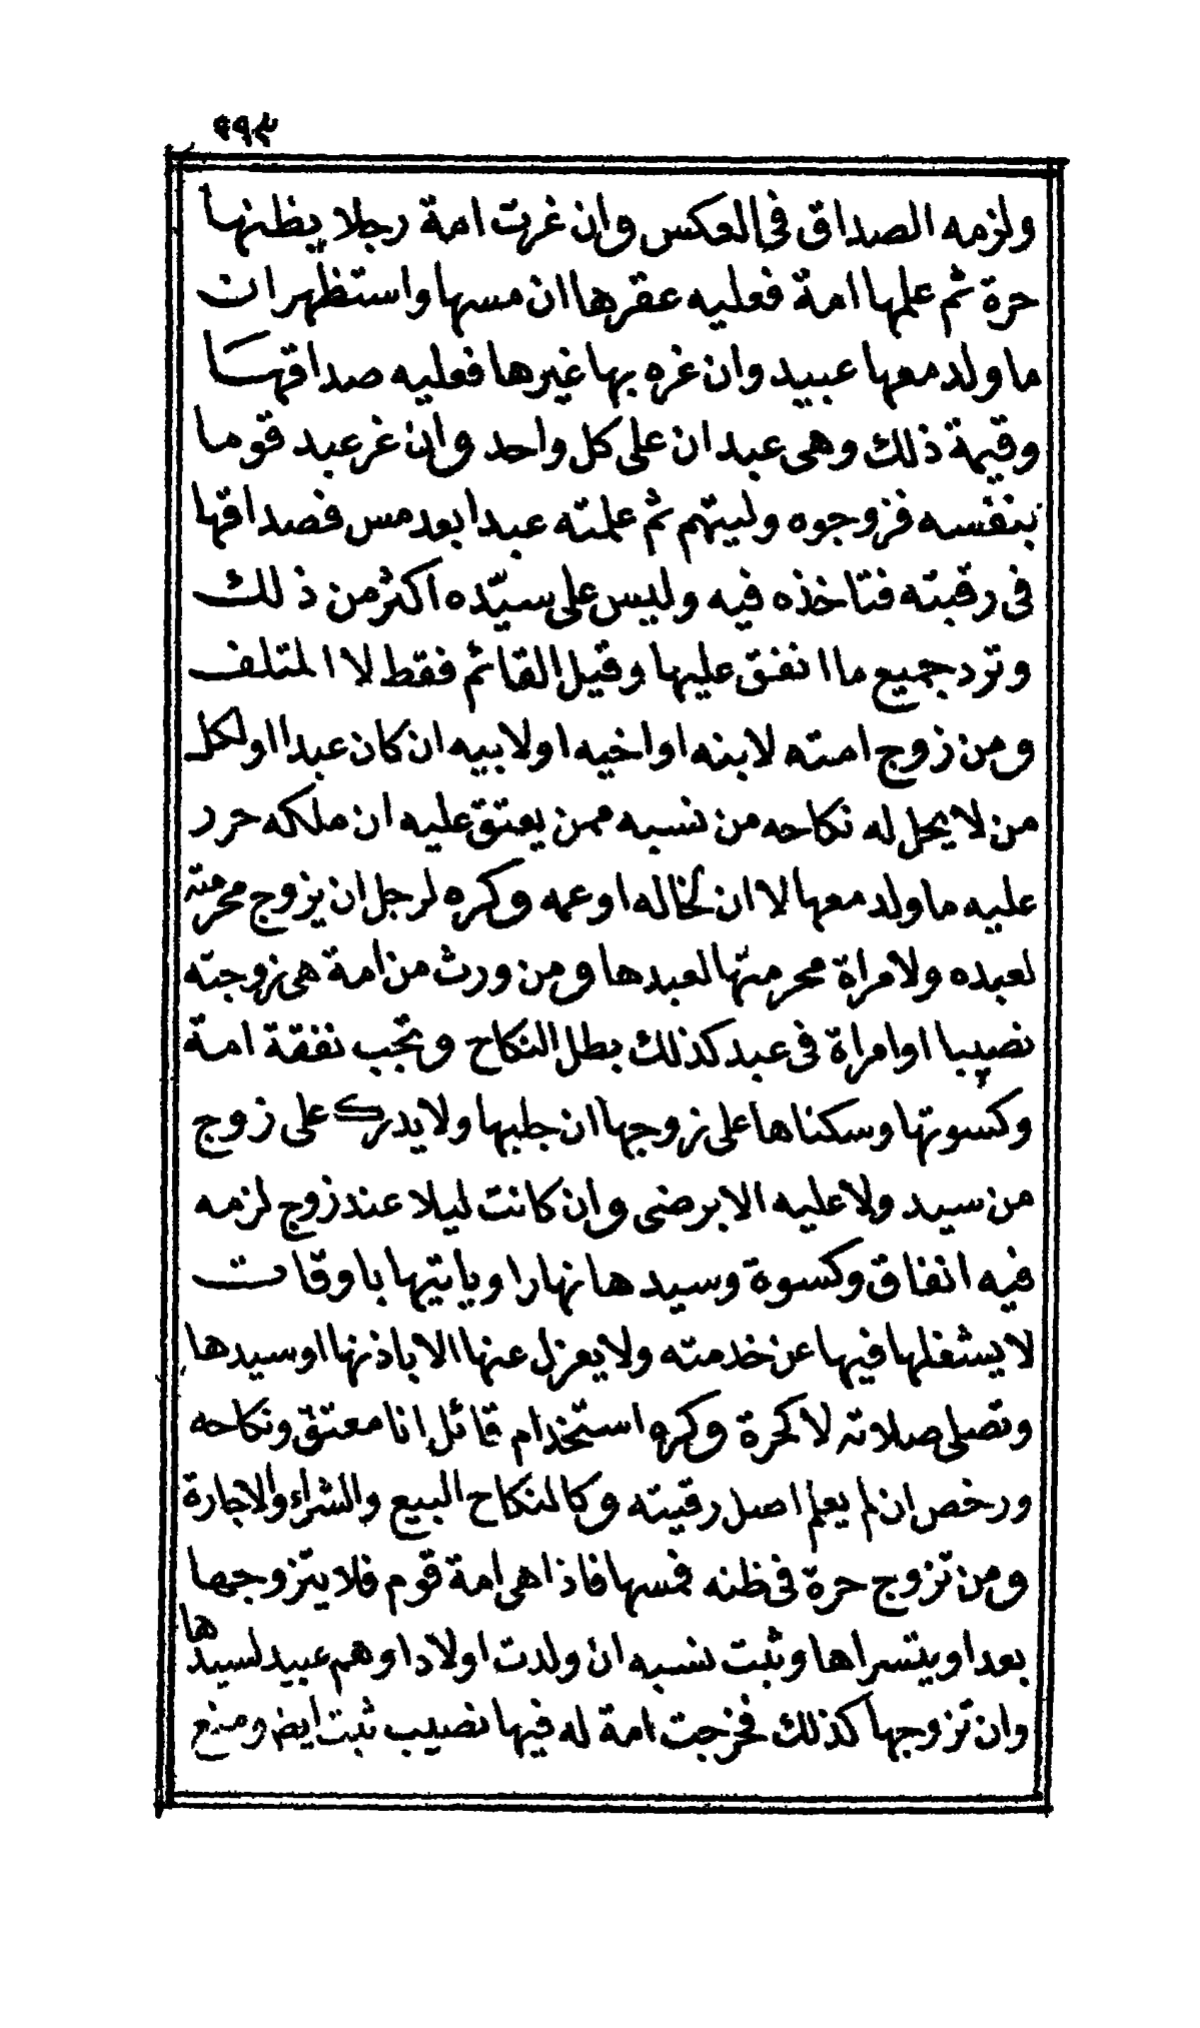 ٩٩٣
ولزمه الصداق في العكس وان غرت امة رجلا يظنها
حرة ثم علمها امة فعليه عقرها ان مسها واستظهر ان
ما ولد معها عبيد وان غره بها غيرها فعليه صداقها
وقيمة ذلك وهى عبدان على كل واحد وان غر عبد قوما
بنفسه فزوجوه وليتهم ثم علمته عبدا بعد مس فصداقها
فى رقبته فتاخذه فيه وليس على سيّده اكثر من ذلك
وترد جميع ما انفق عليها وقيل القائم فقط لا المتلف
ومن زوج امته لابنه او اخيه او لابيه ان كان عبدا او لكل
من لا يحل له نكاحه من نسبه ممن يعتق عليه ان ملكه حرر
عليه ما ولد معها لا ان لخاله او عمه وكره لرجل ان يزوج محرمته
لعبده ولامراة محرمتها لعبدها ومن ورث من امة هى زوجته
نصيبا او امراة فى عبد كذلك بطل النكاح وتجب نفقة امة
وكسوتها وسكناها على زوجها ان جلبها ولا يدرك على زوج
من سيد ولا عليه الا برضى وان كانت ليلا عند زوج لزمه
فيه انفاق وكسوة وسيدها نهارا وياتيها باوقات
لا يشغلها فيها عن خدمته ولا يعزل عنها الا باذنها او سيدها
وتصلى صلاته لا كحرة وكره استخدام قائل انا معتق ونكاحه
ورخص ان لم يعلم اصل رقيته وكالنكاح البيع والشراء والاجارة
ومن تزوج حرة فى ظنه فمسها فاذا هى امة قوم فلا يتزوجها
بعد او يتسراها وثبت نسبه ان ولدت اولادا وهم عبيد لسيدها
وان تزوجها كذلك فخرجت امة له فيها نصيب ثبت ايض ومنع